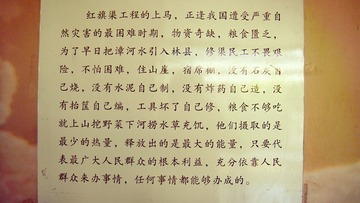 红旗渠工程的上马，正逢我国遭受严重自
然灾害的最困难时期，物资奇缺，粮食匮乏，
为了早日把漳河水引入林县，修渠民工不畏艰
险，不怕困难，住山崖，宿席棚，没有石灰自
己烧，没有水泥自己制，没有炸药自己造，没
有抬筐自己编，工具坏了自己修，粮食不够吃
就上山挖野菜下河捞水草充饥，他们摄取的是
最少的热量，释放出的是最大的能量，只要代
表最广大人民群众的根本利益，充分依靠人民
群众来办事情，任何事情都能够办成的。